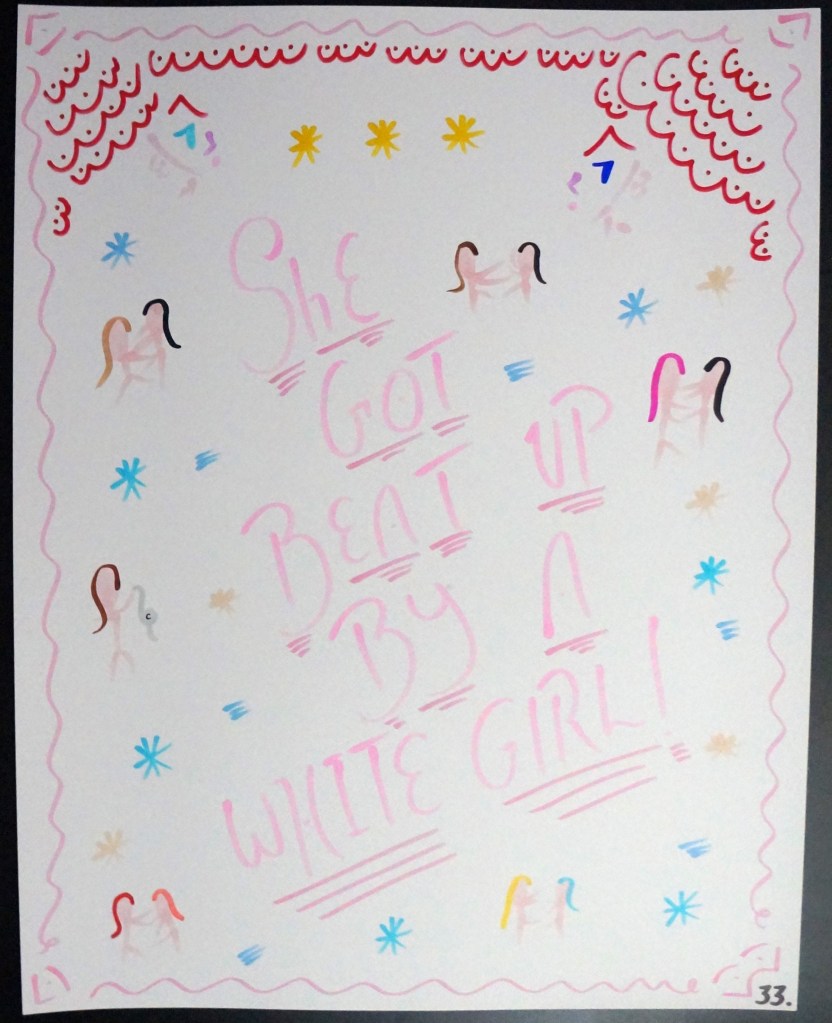 She
GOT
BEAT UP
BY A
WHITE GIRL!
c
33.